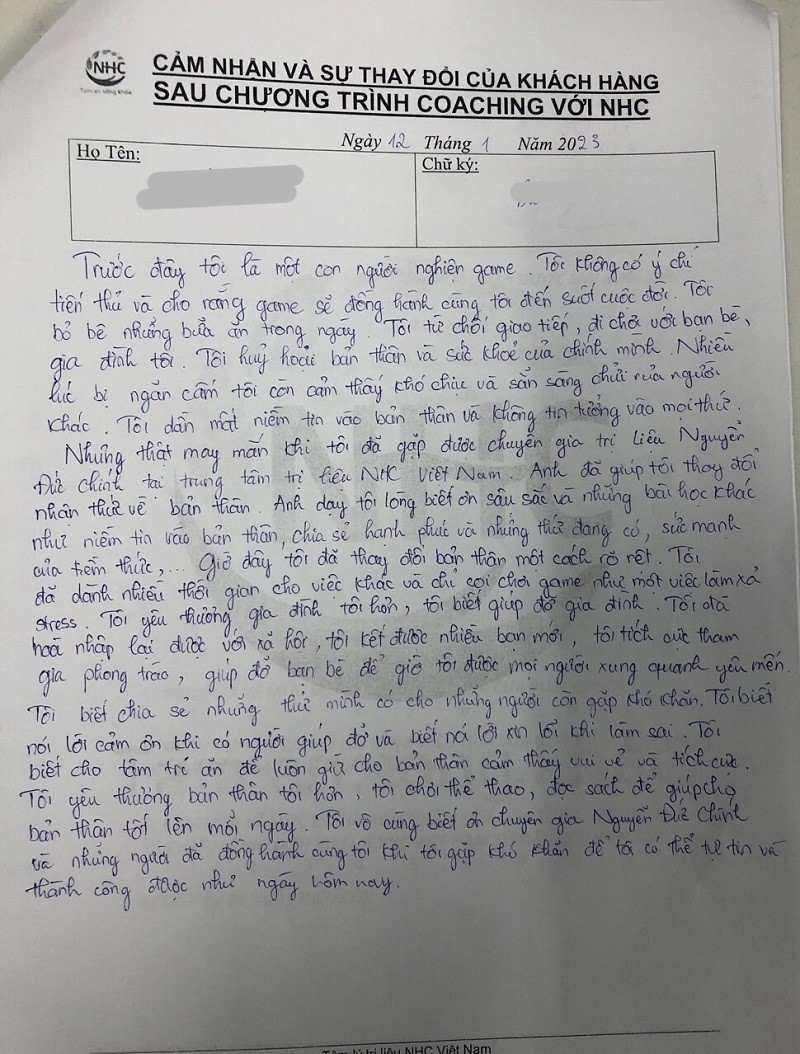 NHC
Tâm an vững khỏe
CẢM NHẬN VÀ SỰ THAY ĐỔI CỦA KHÁCH HÀNG
SAU CHƯƠNG TRÌNH COACHING VỚI NHC
Ngày 12 Tháng 1 Năm 2023
Họ Tên: Chữ ký:
Trước đây tôi là một con người nghiện game. Tôi không có ý chí
tiến thủ và cho rằng game sẽ đồng hành cùng tôi đến suốt cuộc đời. Tôi
bỏ bê những bữa ăn trong ngày. Tôi từ chối giao tiếp, đi chơi với bạn bè,
gia đình tôi. Tôi huỷ hoại bản thân và sức khoẻ của chính mình. Nhiều
lúc bị ngăn cấm tôi còn cảm thấy khó chịu và sẵn sàng chửi rủa người
khác. Tôi dần mất niềm tin vào bản thân và không tin tưởng vào mọi thứ.
Nhưng thật may mắn khi tôi đã gặp được chuyên gia trị liệu Nguyễn
Đức Chính tại trung tâm trị liệu NHC Việt Nam. Anh đã giúp tôi thay đổi
nhận thức về bản thân. Anh dạy tôi lòng biết ơn sâu sắc và những bài học khác
như niềm tin vào bản thân, chia sẻ hạnh phúc và những thứ đang có, sức mạnh
của tiềm thức,... Giờ đây tôi đã thay đổi bản thân một cách rõ rệt. Tôi
đã dành nhiều thời gian cho việc khác và chỉ coi chơi game như một việc làm xả
stress. Tôi yêu thương gia đình tôi hơn, tôi biết giúp đỡ gia đình. Tôi đã
hoà nhập lại được với xã hội, tôi kết được nhiều bạn mới, tôi tích cực tham
gia phong trào, giúp đỡ bạn bè để giờ tôi được mọi người xung quanh yêu mến.
Tôi biết chia sẻ những thứ mình có cho những người còn gặp khó khăn. Tôi biết
nói lời cảm ơn khi có người giúp đỡ và biết nói lời xin lỗi khi làm sai. Tôi
biết cho tâm trí ăn để luôn giữ cho bản thân cảm thấy vui vẻ và tích cực.
Tôi yêu thương bản thân tôi hơn, tôi chơi thể thao, đọc sách để giúp cho
bản thân tốt lên mỗi ngày. Tôi vô cùng biết ơn chuyên gia Nguyễn Đức Chính
và những người đã đồng hành cùng tôi khi tôi gặp khó khăn để tôi có thể tự tin và
thành công được như ngày hôm nay.
Tâm lý trị liệu NHC Việt Nam